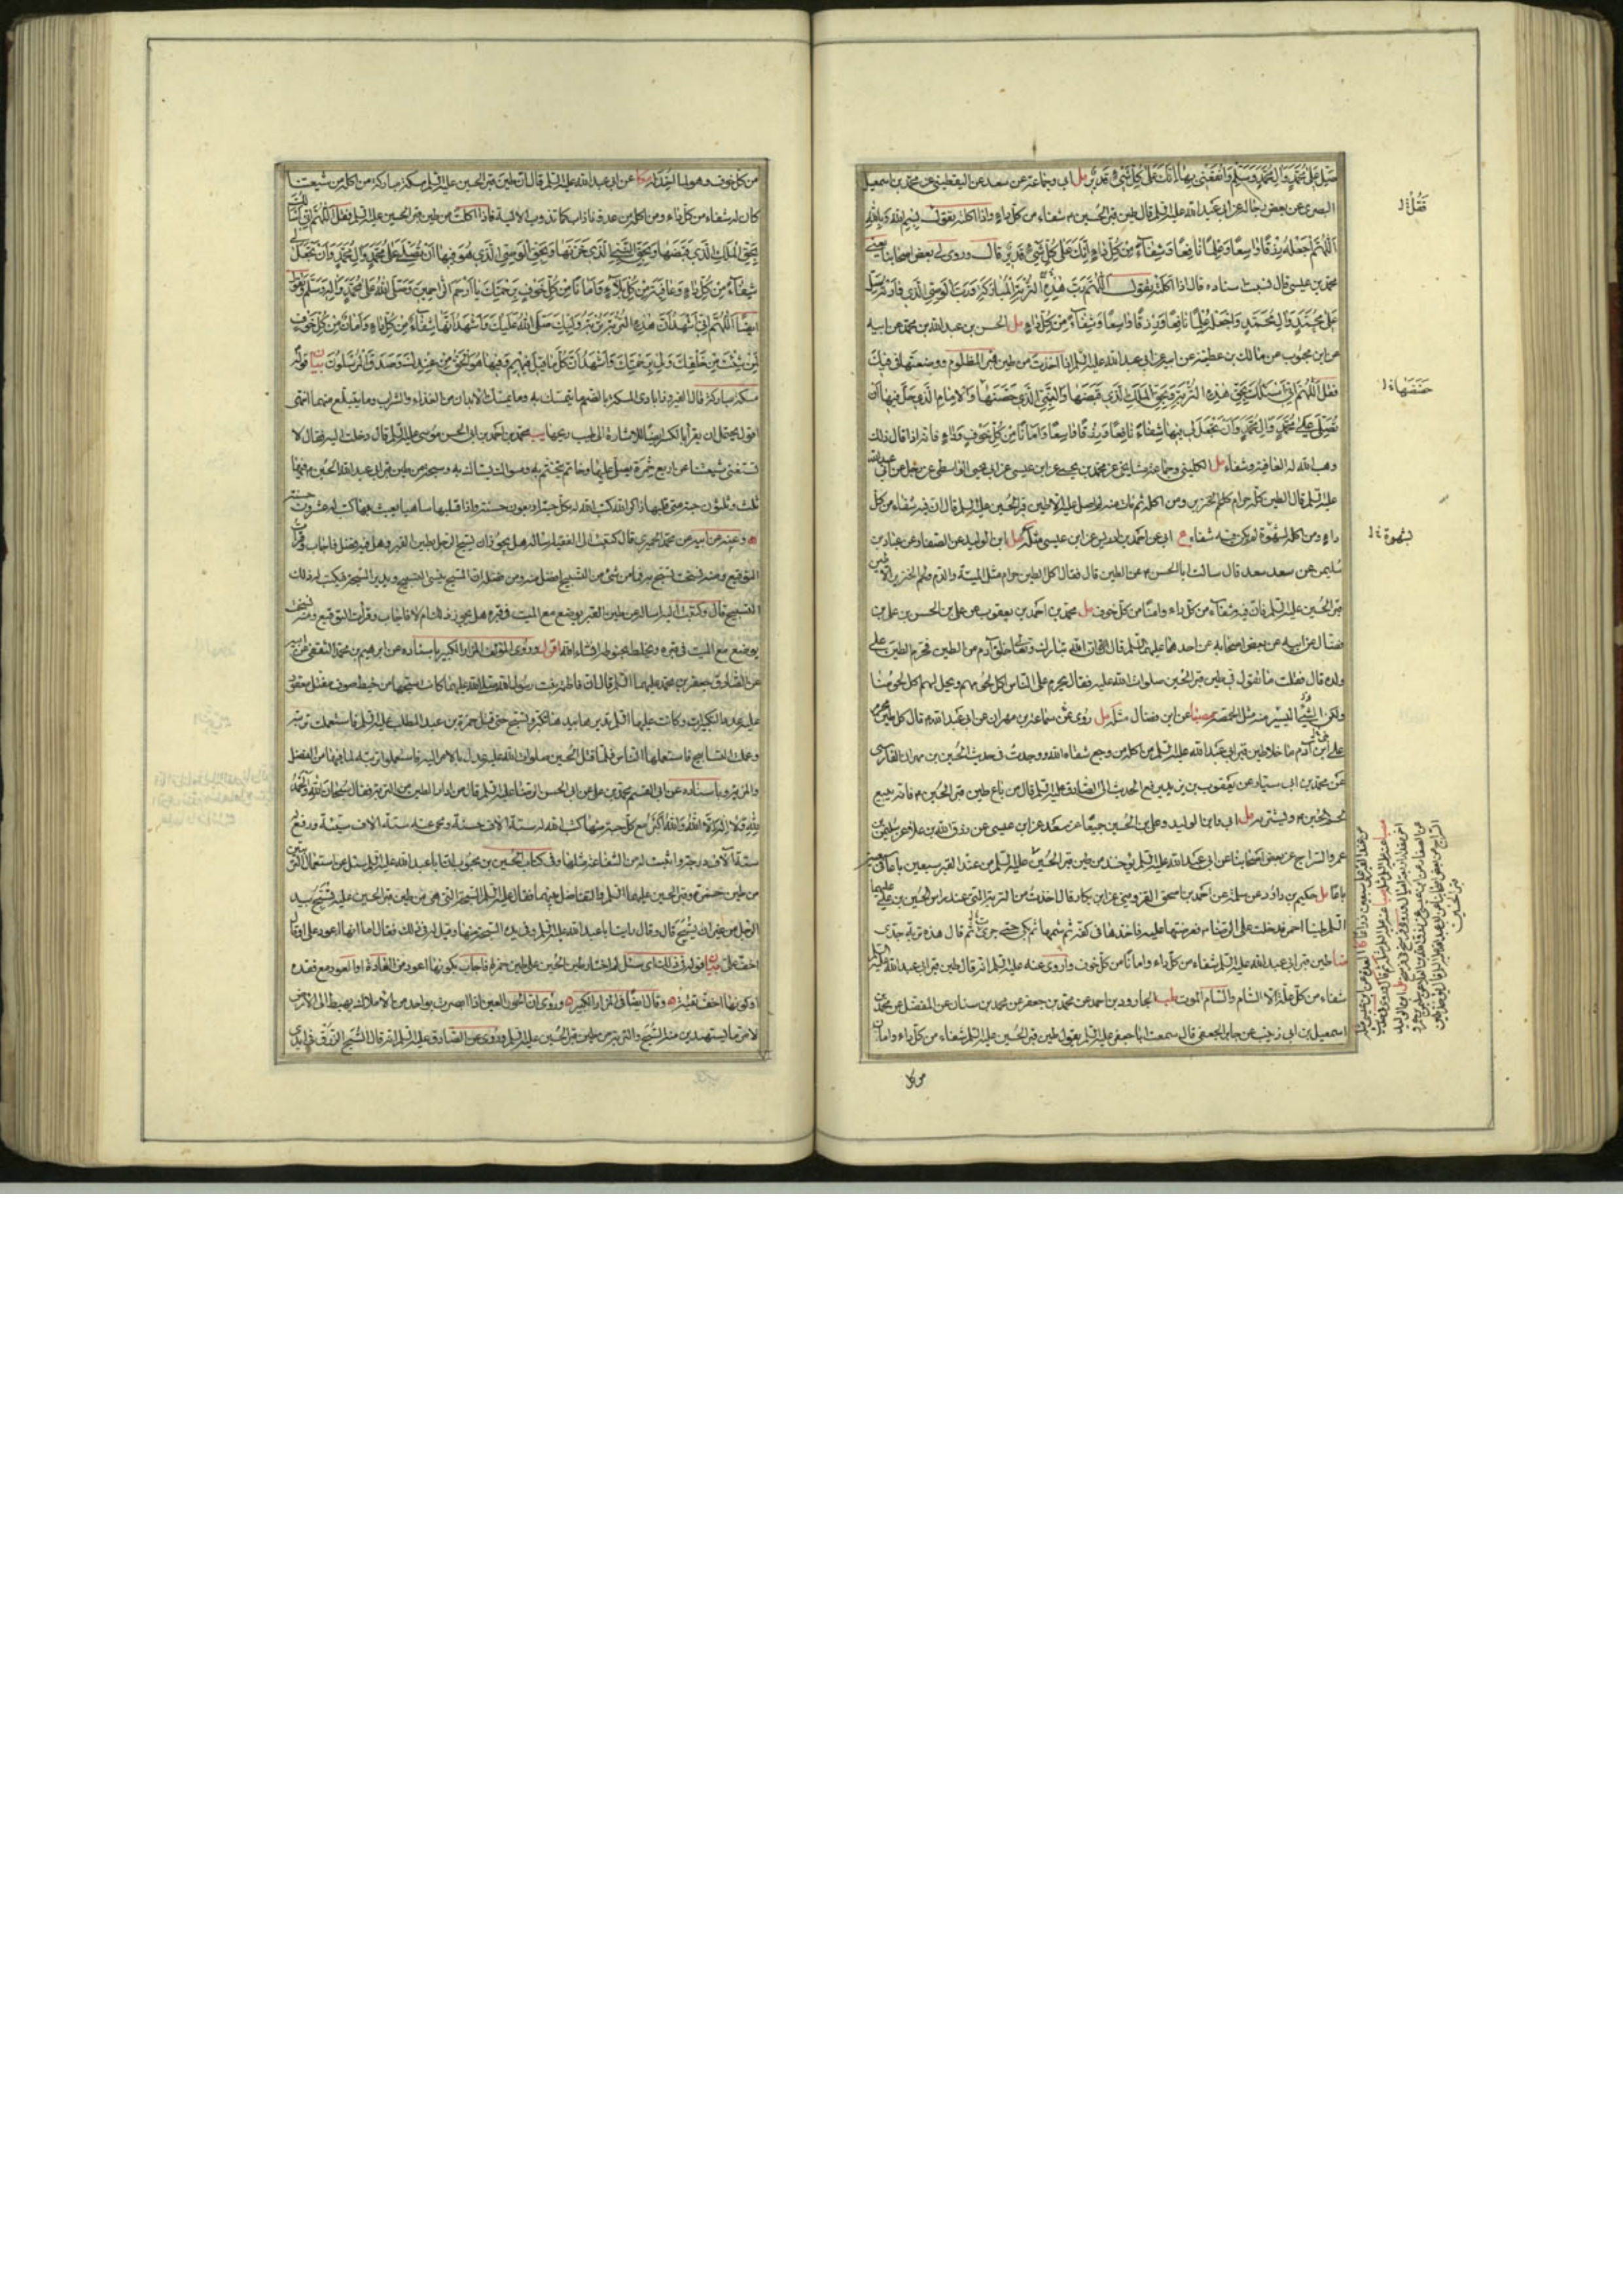 صل على محمد وال محمد وسلم وانفعني بها انك على كل شيء قدير مل ابي وجماعة عن سعد عن اليقطيني عن محمد بن اسمعيل
البصري عن بعض رجاله عن ابي عبد الله عليه السلم قال طين قبر الحسين شفاء من كل داء واذا اكلته تقول بسم الله وبالله
اللهم اجعله رزقا واسعا وعلما نافعا وشفاء من كل داء انك على كل شيء قدير قال وروى لي بعض اصحابنا يعني
محمد بن عيسى قال نسيت اسناده قال اذا اكلته تقول اللهم رب هذه التربة المباركة ورب الوصي الذي وارته صل
على محمد وال محمد واجعله علما نافعا ورزقا واسعا وشفاء من كل داء مل الحسن بن عبد الله بن محمد عن ابيه
عن ابن محبوب عن مالك بن عطية عن ابيه عن ابي عبد الله عليه السلم اذا اخذت من طين قبر المظلوم ووضعتها في فيك
فقل اللهم اني اسئلك بحق هذه التربة وبحق الملك الذي قبضها والنبي الذي حضنها والامام الذي حل فيها ان
تصلي على محمد وال محمد وان تجعل لي فيها شفاء نافعا ورزقا واسعا وامانا من كل خوف وداء فانه اذا قال ذلك
وهب الله له العافية وشفاه مل الكليني وجماعة مشايخي عن محمد بن يحيى عن ابن عيسى عن ابي يحيى الواسطي عن رجل عن ابي عبد الله
عليه السلم قال الطين كله حرام كلحم الخنزير ومن اكله ثم مات منه لم اصل عليه الا طين قبر الحسين عليه السلم قال ان فيه شفاء من كل
داء ومن اكله لشهوة لم يكن فيه شفاء ع ابي عن احمد بن ادريس عن ابن عيسى مثله مل ابن الوليد عن الصفار عن عباد بن
سليمن عن سعد بن سعد قال سالت ابا الحسن عن الطين قال فقال اكل الطين حرام مثل الميتة والدم ولحم الخنزير الا طين
قبر الحسين عليه السلم فان فيه شفاء من كل داء وامنا من كل خوف مل محمد بن احمد بن يعقوب عن علي بن الحسن بن علي بن
فضال عن ابيه عن بعض اصحابه عن احدهما عليهما السلم قال ان الله تبارك وتعالى خلق آدم من الطين فحرم الطين على
ولده قال فقلت ما تقول في طين قبر الحسين صلوات الله عليه فقال يحرم على الناس اكل لحومهم ويحل لهم اكل لحومنا
ولكن الشيء اليسير منه مثل الحمصة مصبا عن ابن فضال مثله مل روى عن سماعة بن مهران عن ابي عبد الله قال كل طين محرم
على ابن آدم ما خلا طين قبر ابي عبد الله عليه السلم من اكله من وجع شفاه الله ووجدت في حديث الحسين بن مهران الفارسي
عن محمد بن ابي سيار عن يعقوب بن يزيد يرفع الحديث الى الصادق عليه السلم قال من باع طين قبر الحسين فانه يبيع
لحم الحسين ويشتريه مل ابي وابن الوليد وعلي بن الحسين جميعا عن سعد عن ابن عيسى عن رزق الله بن علاء عن سليمن بن
عمرو السراج عن بعض اصحابنا عن ابي عبد الله عليه السلم يؤخذ من طين قبر الحسين عليه السلم من عند القبر سبعين باعا في سبعين
باعا مل حكيم بن داود عن سلمة عن احمد بن اسحق القزويني عن ابي بكار قال اخذت من التربة التي عند راس الحسين بن علي عليهما
السلم طينا احمر فدخلت على الرضا فعرضتها عليه فاخذها في كفه ثم شمها ثم بكى حتى جرت ثم قال هذه تربة جدي
ضا طين قبر ابي عبد الله عليه السلم شفاء من كل داء وامانا من كل خوف واروى عنه عليه السلم انه قال طين قبر ابي عبد الله عليه السلم
شفاء من كل علة الا السام والسام الموت طب الجارود بن احمد عن محمد بن جعفر عن محمد بن سنان عن المفضل عن محمد بن
اسمعيل بن ابي زينب عن جابر الجعفي قال سمعت ابا جعفر عليه السلم يقول طين قبر الحسين عليه السلم شفاء من كل داء وامان
من كل
فقل
حضنها
لشهوة
قبر الحسين
من كل خوف وهو لما اخذ له مكا عن ابي عبد الله عليه السلم قال ان طين قبر الحسين عليه السلم مسكة مباركة من اكله من شيعتنا
كان له شفاء من كل داء ومن اكله من عدونا ذاب كما تذوب الالية فاذا اكلت من طين قبر الحسين عليه السلم فقل اللهم اني اسألك
بحق الملك الذي قبضها وبحق النبي الذي خزنها وبحق الوصي الذي هو فيها ان تصلي على محمد وال محمد وان تجعل لي
شفاء من كل داء وعافية من كل بلاء وامانا من كل خوف برحمتك يا ارحم الراحمين وصلى الله على محمد واله وسلم وتقول
ايضا اللهم اني اشهد ان هذه التربة تربة وليك صلى الله عليك واشهد انها شفاء من كل داء وامان من كل خوف
لمن شئت من خلقك ولي برحمتك واشهد ان كل ما قيل فيهم وفيها هو الحق من عندك وصدق المرسلون بيان قوله
مسكة مباركة قال الفيروزابادي المسكة بالضم ما يتمسك به وما يمسك الابدان من الغذاء والشراب وما يتبلغ منهما انتهى
اقول يحتمل ان يقرأ بالكسر ايضا للاشارة الى طيب ريحها يب محمد بن احمد بن ابي الحسن موسى عليه السلم قال دخلت اليه فقال لا
تستغني شيعتنا عن اربع خمرة يصلي عليها وخاتم يختتم به وسواك يستاك به وسبحة من طين قبر ابي عبد الله الحسين فيها
ثلث وثلثون حبة متى قلبها ذاكرا لله كتب الله له بكل حبة اربعون حسنة واذا قلبها ساهيا يعبث بها كتب له عشرون حسنة
وعنه عن ابيه عن محمد الحميري قال كتبت الى الفقيه اساله هل يجوز ان يسبح الرجل بطين القبر وهل فيه فضل فاجاب وقرأت
التوقيع ومنه نسخت تسبح به فما من شيء من التسبيح افضل منه ومن فضله ان المسبح ينسى التسبيح ويدير السبحة فيكتب له ذلك
التسبيح قال وكتبت اليه اساله عن طين القبر يوضع مع الميت في قبره هل يجوز ذلك ام لا فاجاب وقرأت التوقيع ومنه نسخت
يوضع مع الميت في قبره ويخلط بحنوطه انشاء الله اقول وروى مؤلف المزار الكبير باسناده عن ابرهيم بن محمد الثقفي عن ابيه
عن الصادق جعفر بن محمد عليهما السلم قال ان فاطمة بنت رسول الله صلى الله عليهما كانت سبحتها من خيط صوف مفتل معقود
عليه عدد التكبيرات وكانت عليها السلم تديرها بيدها تكبر وتسبح حتى قتل حمزة بن عبد المطلب عليه السلم فاستعملت تربته
وعملت التسابيح فاستعملها الناس فلما قتل الحسين صلوات الله عليه عدل بالامر اليه فاستعملوا تربته لما فيها من الفضل
والمزية وباسناده عن ابي القسم محمد بن علي عن ابي الحسن الرضا عليه السلم قال من ادار الطين من التربة فقال سبحان الله والحمد
لله ولا اله الا الله والله اكبر مع كل حبة منها كتب الله له ستة الاف حسنة ومحى عنه ستة الاف سيئة ورفع له
ستة آلاف درجة واثبت له من الشفاعة مثلها وفي كتاب الحسن بن محبوب ان ابا عبد الله عليه السلم سئل عن استعمال التربتين
من طين حمزة وقبر الحسين عليهما السلم والتفاضل بينهما فقال عليه السلم السبحة التي هي من طين قبر الحسين عليه تسبح بيد
الرجل من غير ان يسبح قال وقال رايت ابا عبد الله عليه السلم وفي يده السبحة منها وقيل له في ذلك فقال اما انها اعود علي او قال
اخف علي بيان قوله
وقال ايضا في المزار الكبير وروى ان الحور العين اذا ابصرت بواحد من الاملاك يهبط الى الارض
لامر ما يستهدين منه السبح والتربة من طين قبر الحسين عليه السلم وروى عن الصادق عليه السلم انه قال السبح الزرق في ايدي